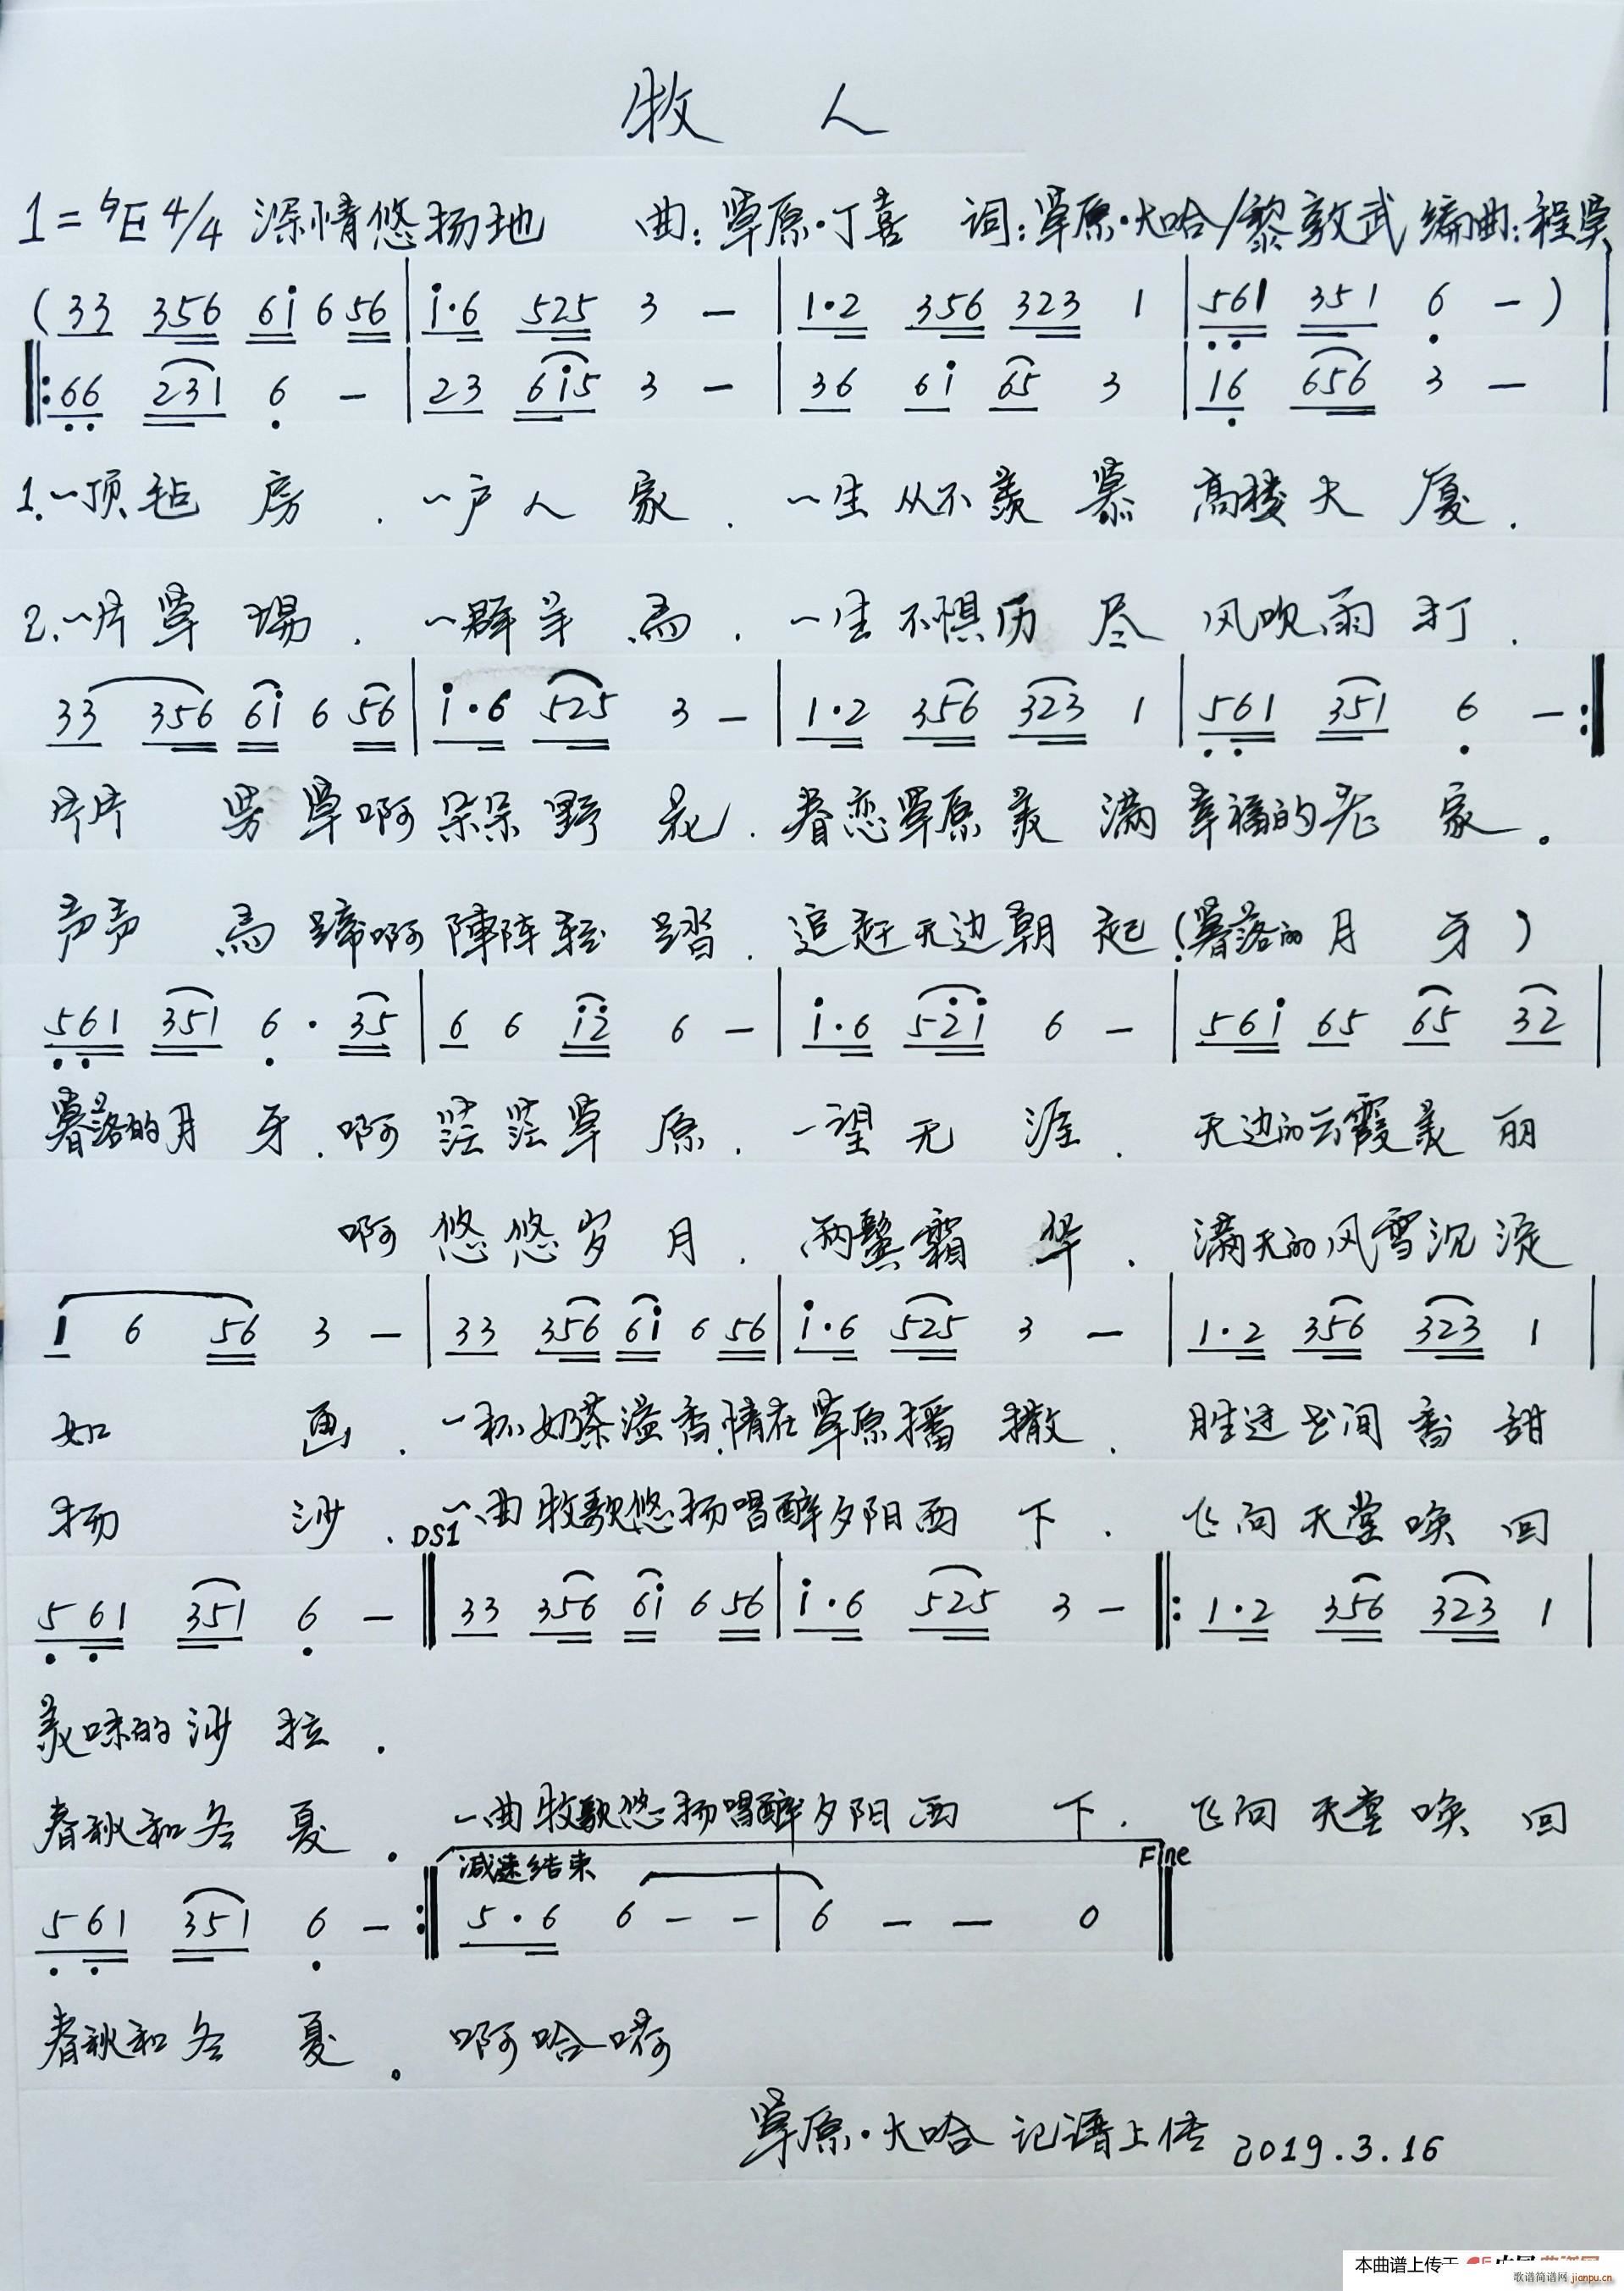 牧人
1=♮E 4/4 深情悠扬地 曲:草原·丁喜 词:草原·大哈/黎敦武 编曲:程昊
(33 356 6i 6 56 | i·6 525 3 - | 1·2 356 323 1 | 561 351 6 - ) |
‖:66 231 6 - | 23 6i5 3 - | 36 6i 65 3 | 16 656 3 - |
1.一顶毡房.一户人家.一生从不羡慕高楼大厦.
2.一片草场.一群羊马.一生不惧历尽风吹雨打.
33 356 6i 6 56 | i·6 525 3 - | 1·2 356 323 1 | 561 351 6 - :‖
片片芳草啊朵朵野花.眷恋草原美满幸福的老家。
声声马蹄啊陣阵轻踏.追赶无边朝起(暮落的月牙)
561 351 6· 35 | 6 6 i2 6 - | i·6 52i 6 - | 56i 65 65 32 |
暮落的月牙.啊茫茫草原.一望无涯.天边的云霞美丽
啊悠悠岁月.两鬓霜华.满天的风雪沉淀
i 6 56 3 - | 33 356 6i 6 56 | i·6 525 3 - | 1·2 356 323 1 |
如画.一杯奶茶溢香.情在草原播撒.胜过世间香甜
扬沙.一曲牧歌悠扬唱醉夕阳西下.飞向天堂唤回
DS1
561 351 6 - ‖ 33 356 6i 6 56 | i·6 525 3 - ‖: 1·2 356 323 1 |
美味的沙拉.
春秋和冬夏。一曲牧歌悠扬唱醉夕阳西下.飞向天堂唤回
减速结束 Fine
561 351 6 - :‖ 5·6 6 - - | 6 - - 0 ‖
春秋和冬夏。啊哈嗬
草原·大哈 记谱上传 2019.3.16
本曲谱上传于
歌谱简谱网 jianpu.cn